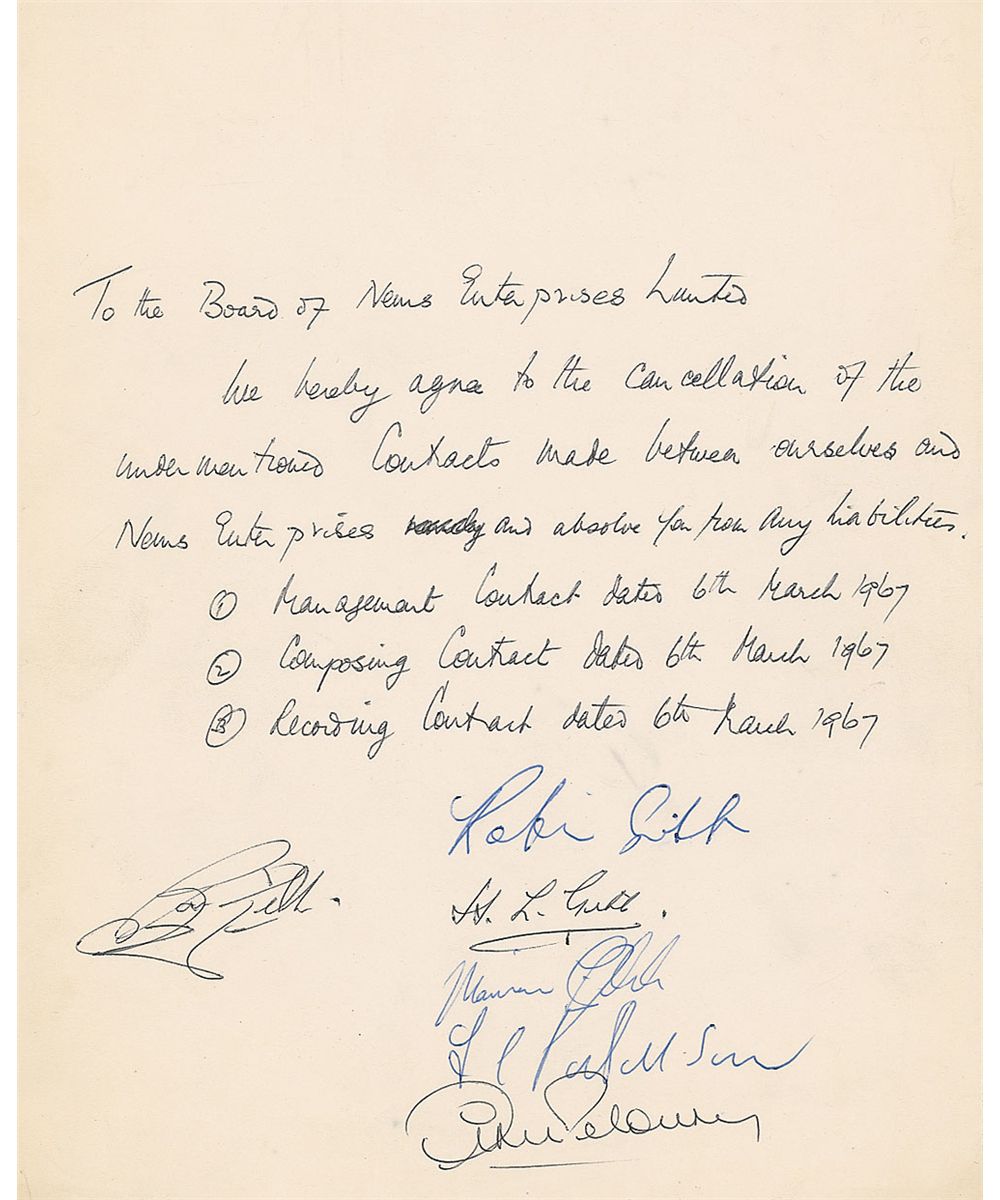 To the Board of Nems Enterprises Limited
We hereby agree to the cancellation of the
undermentioned Contracts made between ourselves and
Nems Enterprises and absolve you from any liabilities.
① Management Contract dated 6th March 1967
② Composing Contract dated 6th March 1967
③ Recording Contract dated 6th March 1967
Robin Gibb
B Gibb.
H. L. Gibb.
Maurice Gibb